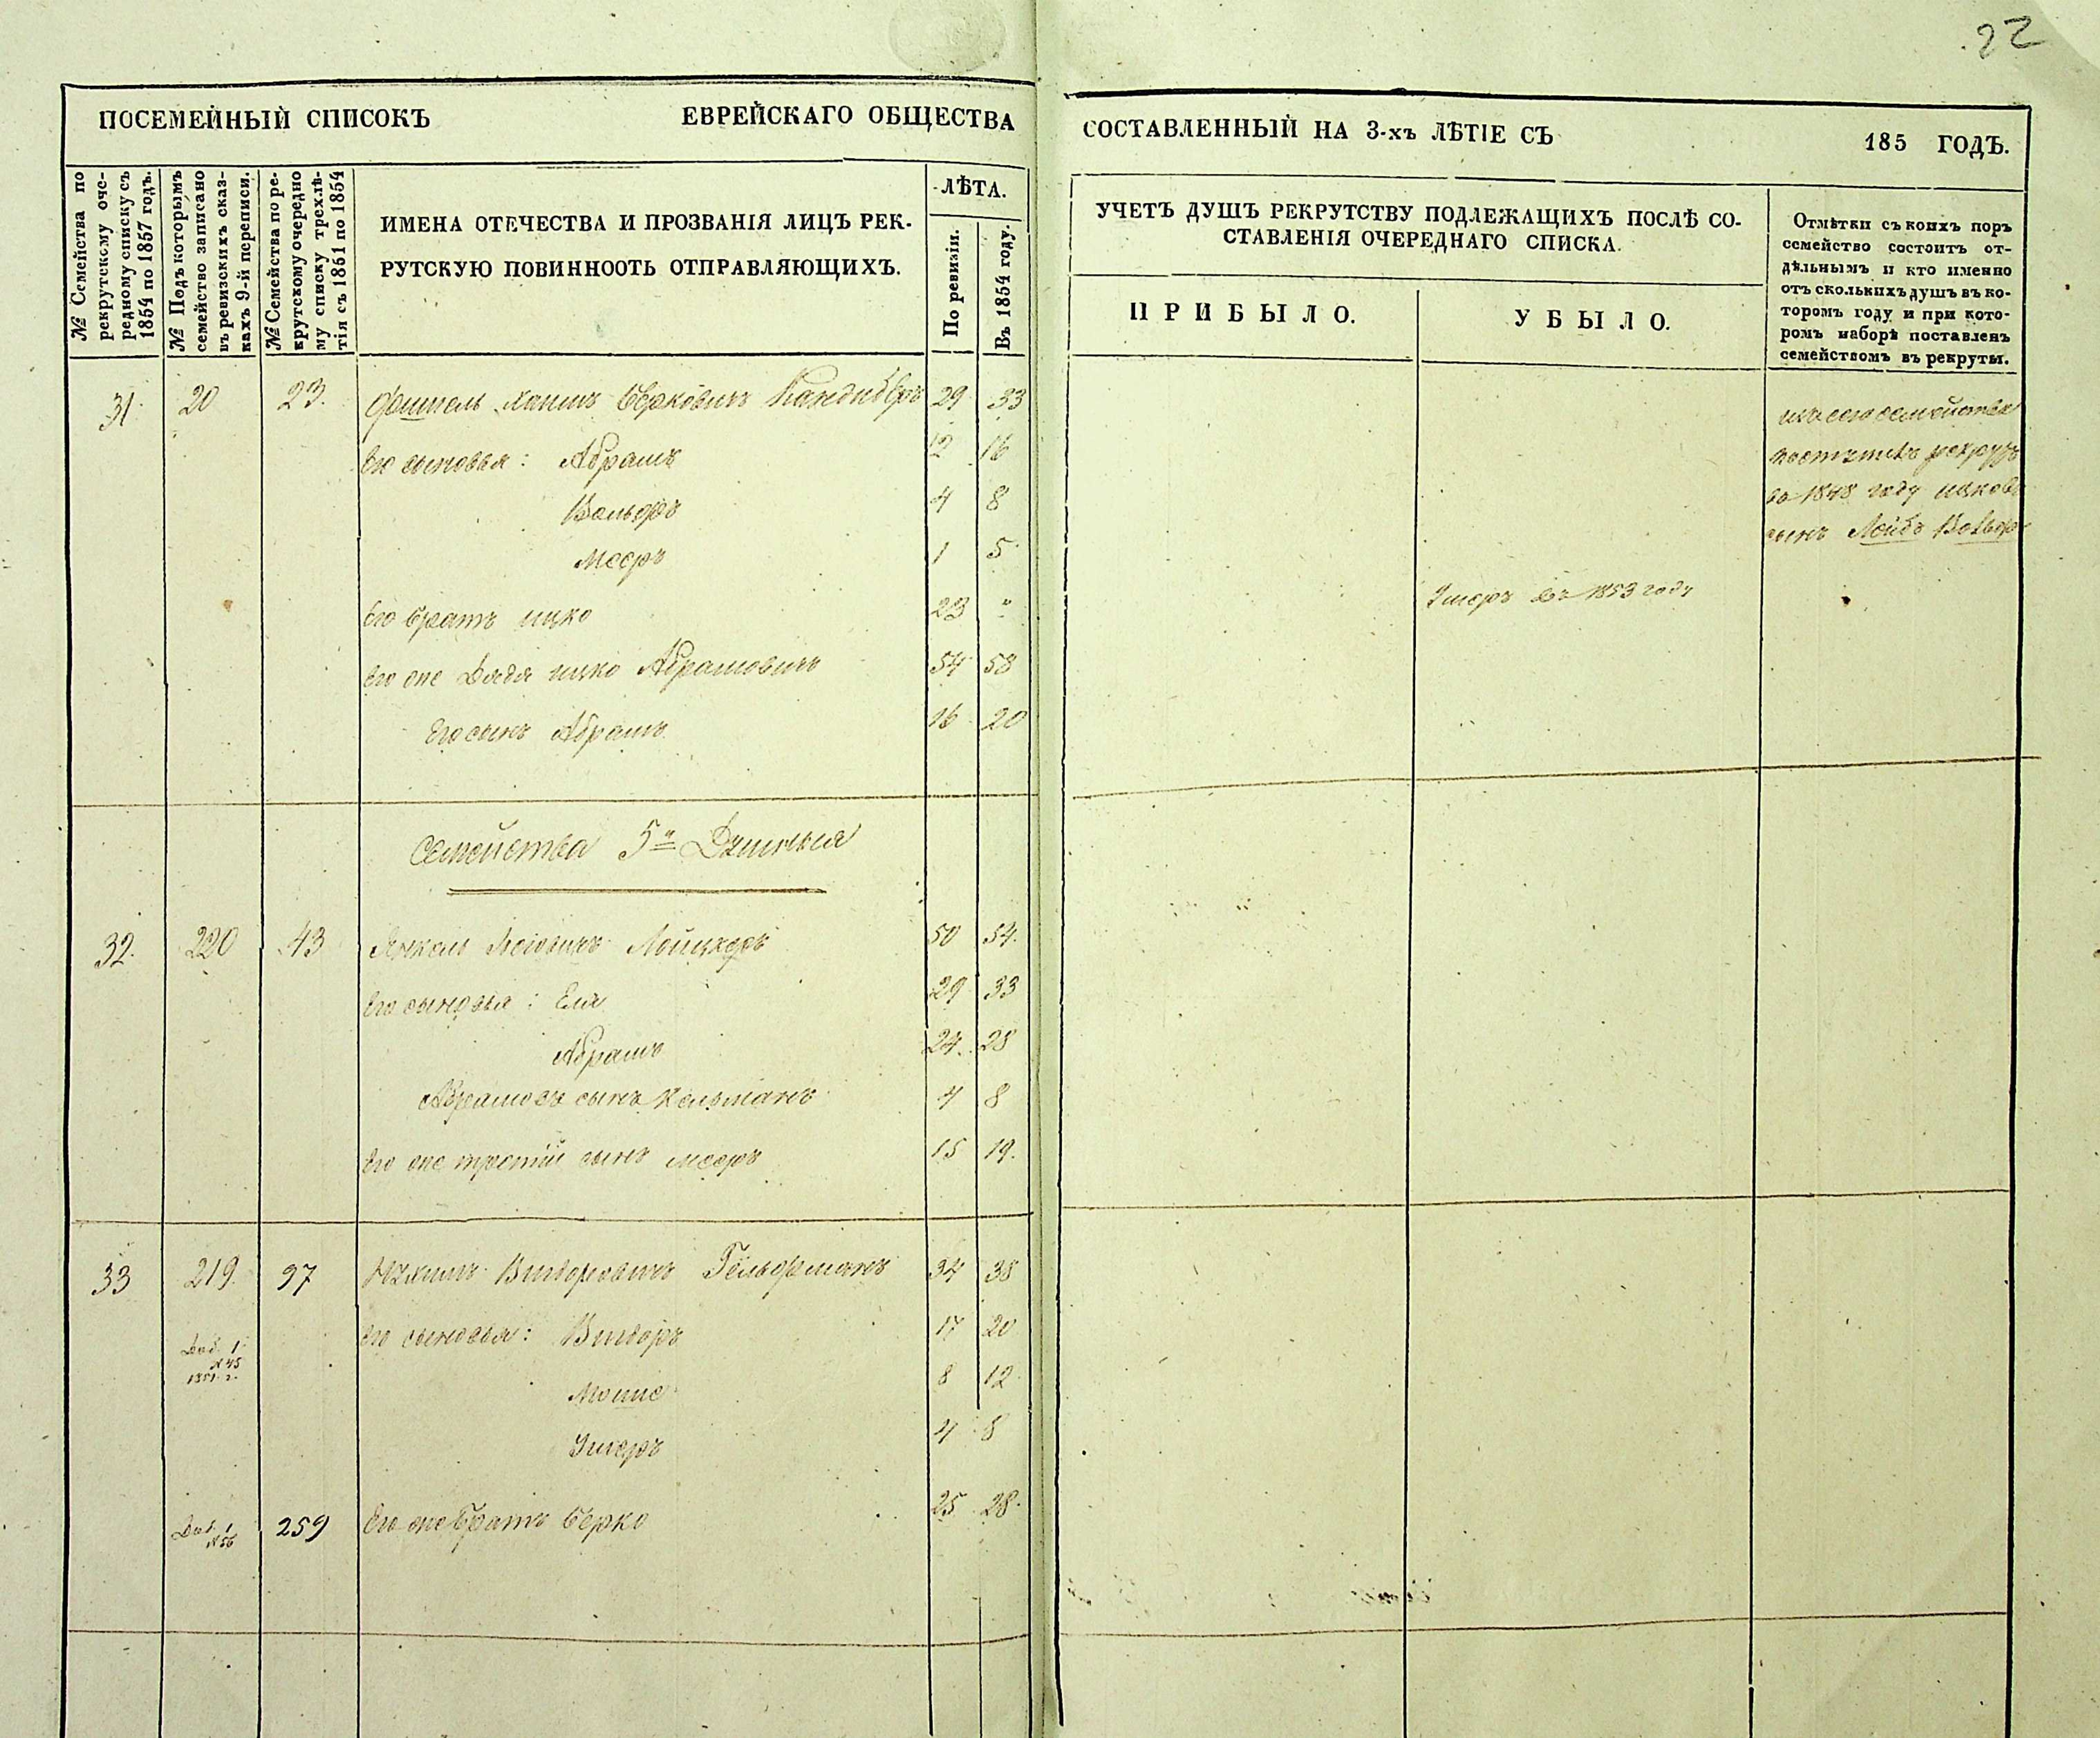 22
ПОСЕМЕЙНЫЙ СПИСОКЪ ЕВРЕЙСКАГО ОБЩЕСТВА СОСТАВЛЕННЫЙ НА 3-хъ ЛѢТІЕ СЪ 185 ГОДЪ.
№ Семейства по
рекрутскому оче-
редному списку съ
1854 по 1857 годъ.
№ Подъ которымъ
семейство записано
въ ревизскихъ сказ-
кахъ 9-й переписи.
№ Семейства по ре-
крутскому очередно
му списку трехлѣ-
тія съ 1851 по 1854
ИМЕНА ОТЕЧЕСТВА И ПРОЗВАНІЯ ЛИЦЪ РЕК-
РУТСКУЮ ПОВИННООТЬ ОТПРАВЛЯЮЩИХЪ.
ЛѢТА.
По ревизіи.
Въ 1854 году.
УЧЕТЪ ДУШЪ РЕКРУТСТВУ ПОДЛЕЖАЩИХЪ ПОСЛѢ СО-
СТАВЛЕНІЯ ОЧЕРЕДНАГО СПИСКА.
ПРИБЫЛО.
УБЫЛО.
Отмѣтки съ коихъ поръ
семейство состоитъ от-
дѣльнымъ и кто именно
отъ сколькихъ душъ въ ко-
торомъ году и при кото-
ромъ наборѣ поставленъ
семействомъ въ рекруты.
31 20 23. Фишель Хаимъ Берковичъ 29 33
изъ сего семейства
Его сыновья: Абрамъ 12 16
рекрутъ
Вольфъ 4 8
въ 1848 году ицковъ
Мееръ 1 5
сынъ Лейбъ Вольфъ
Его братъ ицко 23 "
Умеръ въ 1853 году
Его же Дядя ицко Абрамовичъ 54 58
Его сынъ Абрамъ 16 20
Семейства 5и Душныя
32. 220 43 Янкель 50 54.
Его сыновья: Еля 29 33
Абрамъ 24. 28
Абрамовъ сынъ Кельманъ 4 8
Его же третій сынъ мееръ 15 19.
33 219. 97 Нухимъ Вигдоровичъ Гельфманъ 34 38
Его сыновья: Вигдоръ 17 20
Доб. 1
№ 45
1851 г.
Мошко 8 12
Ушеръ 4 8
Доб. 1
№ 56
259 Его же братъ Берко 25 28.